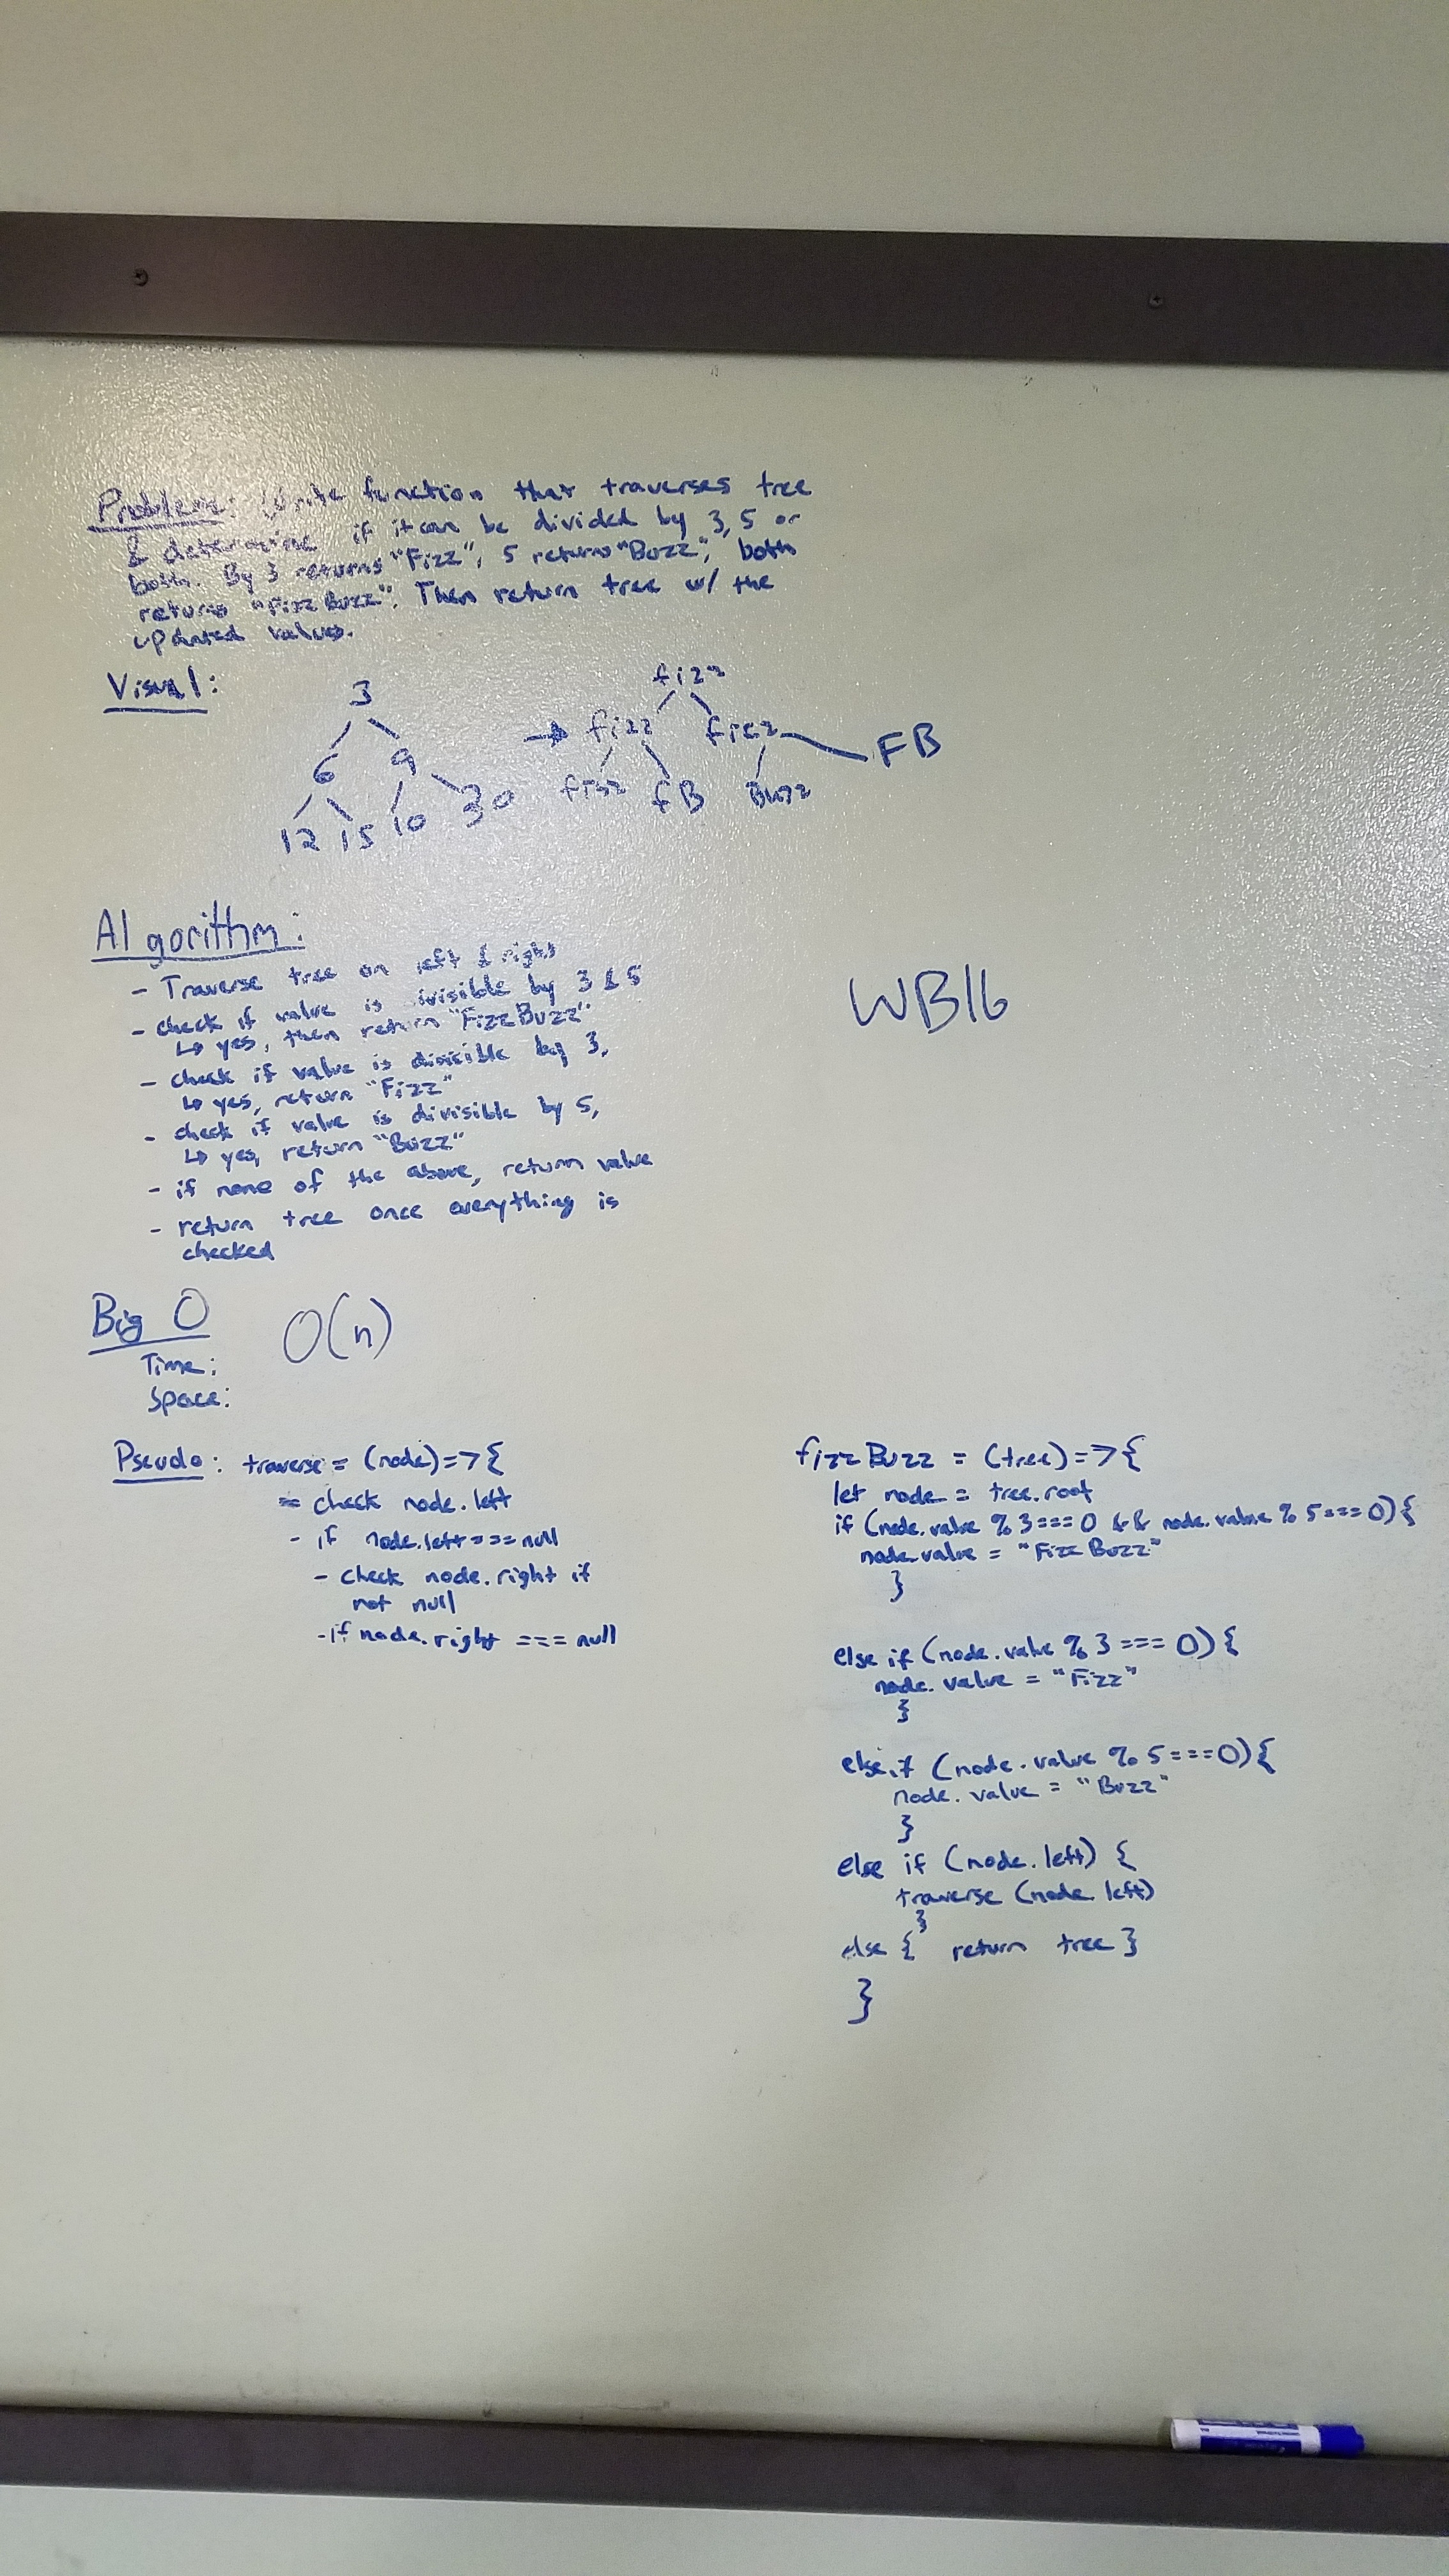 Problem: Write function that traverses tree
& determine if it can be divided by 3, 5 or
both. By 3 returns "Fizz", 5 returns "Buzz", both
returns "FizzBuzz". Then return tree w/ the
updated values.
Visual:
3
6 9
12 15 10 30
→
fizz
fizz fizz
fizz fB Buzz FB
Algorithm:
- Traverse tree on left & right
- check if value is ivisible by 3 & 5
↳ yes, then return "FizzBuzz"
- check if value is divisible by 3,
↳ yes, return "Fizz"
- check if value is divisible by 5,
↳ yes, return "Buzz"
- if none of the above, return value
- return tree once everything is
checked
WB16
Big O
O(n)
Time:
Space:
Pseudo: traverse = (node) => {
- check node.left
- if node.left === null
- check node.right if
not null
- if node.right === null
fizzBuzz = (tree) => {
let node = tree.root
if (node.value % 3 === 0 && node.value % 5 === 0) {
node.value = "FizzBuzz"
}
else if (node.value % 3 === 0) {
node.value = "Fizz"
}
else if (node.value % 5 === 0) {
node.value = "Buzz"
}
else if (node.left) {
traverse (node.left)
}
else { return tree }
}